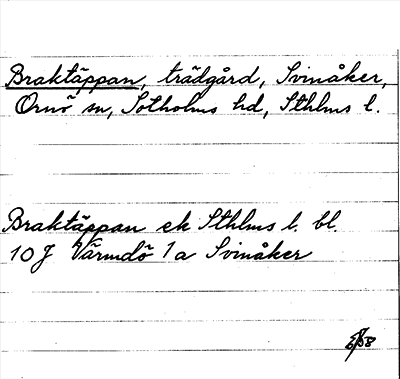 Braktäppan, trädgård, Svinåker,
Ornö sn, Sotholms hd, Sthlms l.
Braktäppan ek Sthlms l. bl.
10J Värmdö 1a Svinåker